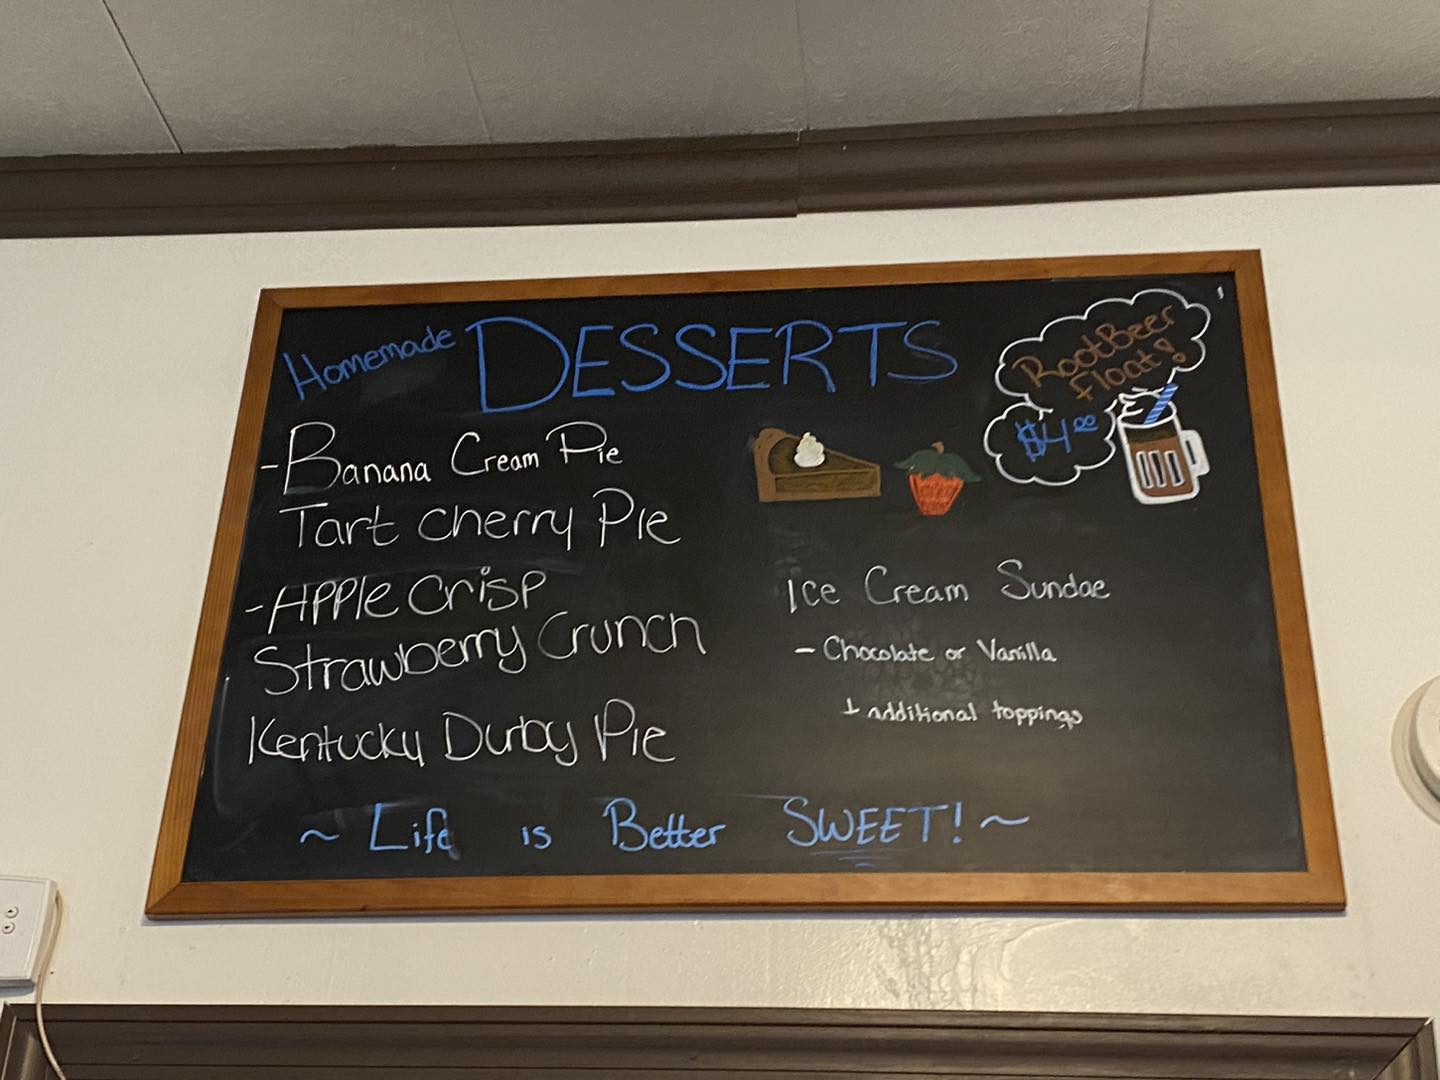 Homemade DESSERTS
RootBeer
Float!
$4.00
- Banana Cream Pie
Tart Cherry Pie
- Apple Crisp
Strawberry Crunch
Kentucky Durby Pie
Ice Cream Sundae
- Chocolate or Vanilla
+ additional toppings
~ Life is Better SWEET! ~